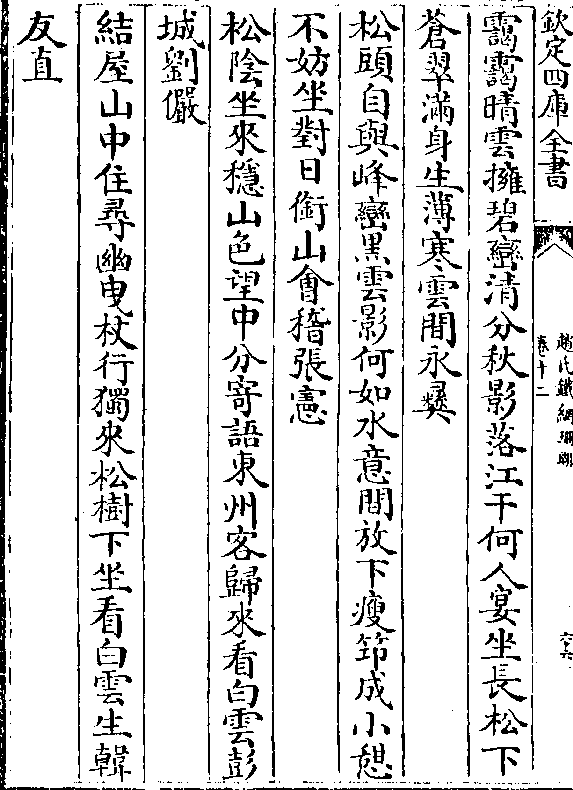 欽定四庫全書
趙氏鐵網珊瑚
卷十二
六十六
靄靄晴雲擁碧巒清分秋影落江干何人宴坐長松下
蒼翠滿身生薄寒雲間永彝
松頭自與峰巒黒雲影何如水意間放下瘦筇成小憩
不妨坐對日銜山會稽張憲
松陰坐來穩山色望中分寄語東州客歸來看白雲彭
城劉儼
結屋山中住尋幽曳杖行獨來松樹下坐看白雲生韓
友直